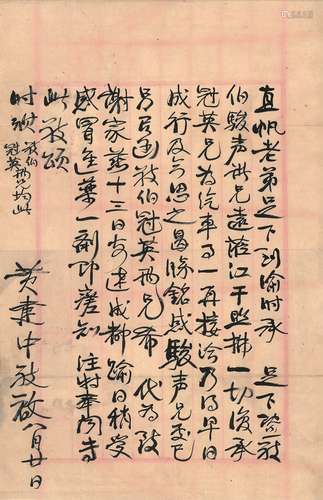 直帆老弟足下到渝时承 足下暨
伯骏声兄远涉江干照拂一切后承
冠英兄为汽车事一再接洽乃得早日
成行及今思之曷胜铭感骏声兄处已
另有函 伯冠英两兄希 代为致
谢家 十三日安达成都渝日稍受
感冒进药一剂即 知注
此敬颂
时祺 伯冠英两兄均此
黄建中敬启 八月廿日